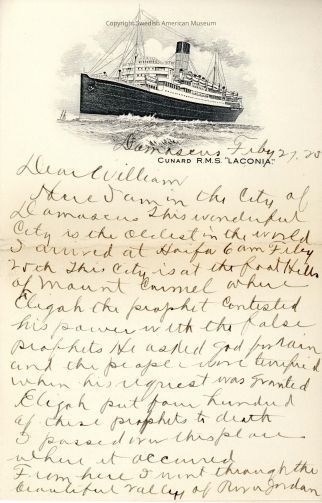 Copyright Swedish American Museum
Damascus Feby 27, 23
CUNARD R.M.S. "LACONIA."
Dear William
Here I am in the City of
Damascus This wonderful
City is the oldest in the world
I arrived at Haifa 6 am Feby
25th This City is at the foot Hills
of Mount Carmel where
Elijah the prophet Contested
his power with the false
prophets He asked god for rain
and the people were terrified
when his request was granted
Elijah put four hundred
of these prophets to death
I passed over this place
where it occurred
From here I went through the
beautiful valley of River Jordan